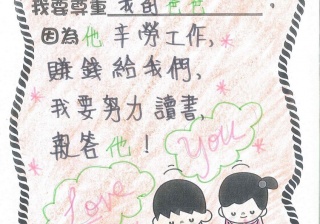 我要尊重 我的爸爸,
因為他 辛勞工作,
賺錢給我們,
我要努力讀書,
報答他!
You
Love